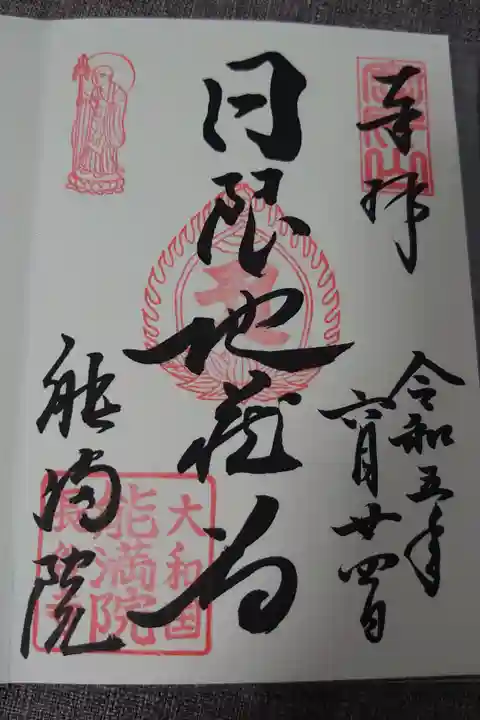 奉拝
令和五年
六月廿四日
日限地蔵尊
能満院
大和国
能満院
長谷寺